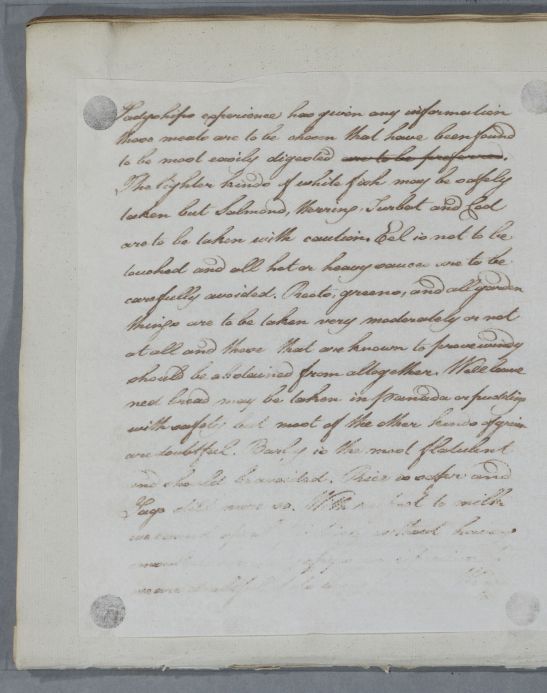 Ladyships experience has given any information
those meats are to be chosen that have been found
to be most easily digested are to be preferred.
The lighter kinds of white fish may be safely
taken but Salmond, Herring, Turbot and Cod
are to be taken with caution, Eel is not to be
touched and all hot or heavy sauces are to be
carefully avoided. Roots, greens, and all garden
things are to be taken very moderately or not
at all and those that are known to prove windy
should be abstained from altogether. Well leave
ned bread may be taken in panada or pudding
with safety but most of the other kinds of grain
are doubtful. Barly is the most flatulent
and should be avoided. Rice is safer and
Sago still more so. With respect to milk
we cannot without having